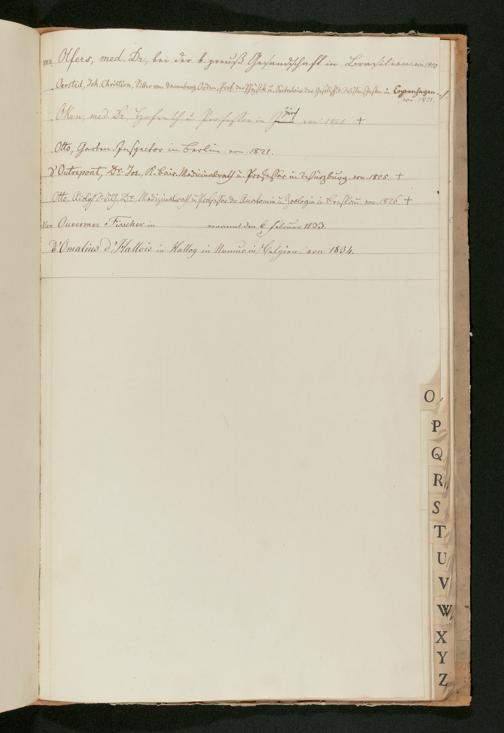 von Olfers, med. Dr., bei der k. preuß. Gesandschaft in Brasilien von 1820
Oersted, Joh. Christian, Ritter von Danebrog Orden, Prof. der Physik u. Sekretär der Gesellsch. d. Wissenschaften in Copenhagen
von 1821.
Oken, med. Dr. Hofrath u. Professor in Zürich von 1821 +
Otto, Garten-Inspector in Berlin von 1821.
D'Outrepont, Dr. Jos. K. bair. Medicinalrath u. Professor in Würzburg. von 1825. +
Otto, Adolf Wilh. Dr. Medizinalrath u. Professor der Anatomie u. Zoologie in Breslau. von 1826 +
Van Ouwermer Fisscher in ernannt den 6. Februar 1833.
D'Omalius d'Hallois in Halloy in Namur in Belgien von 1834.
O
P
Q
R
S
T
U
V
W
X
Y
Z